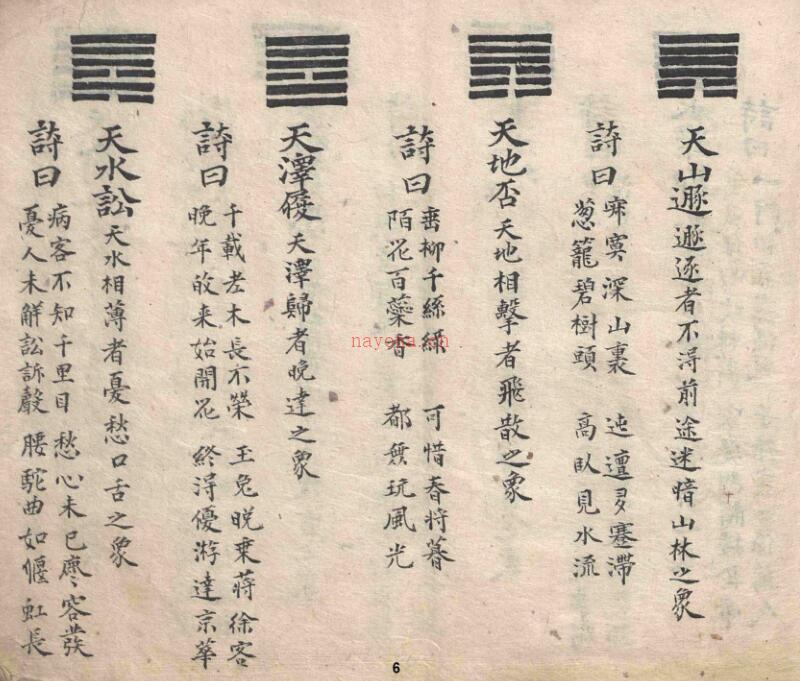 天山遯遯逐者不得前途迷暗山林之象
詩曰
寂寞深山裏 迍邅多蹇滯
葱籠碧樹頭 高臥見水流
天地否天地相擊者飛散之象
詩曰
垂柳千絲綠 可惜春将暮
陌花百藥香 都無玩風光
天澤履天澤歸者晚達之象
詩曰
千載老木長不榮 玉兔晚乗蔣徐客
晚年的来始開花 終淂優游達京華
天水訟天水相薄者憂愁口舌之象
詩曰
病客不知千里目 愁心未已廖容發
憂人未解訟訴聲 腰駝曲如偃虹長
nayona.cn
6